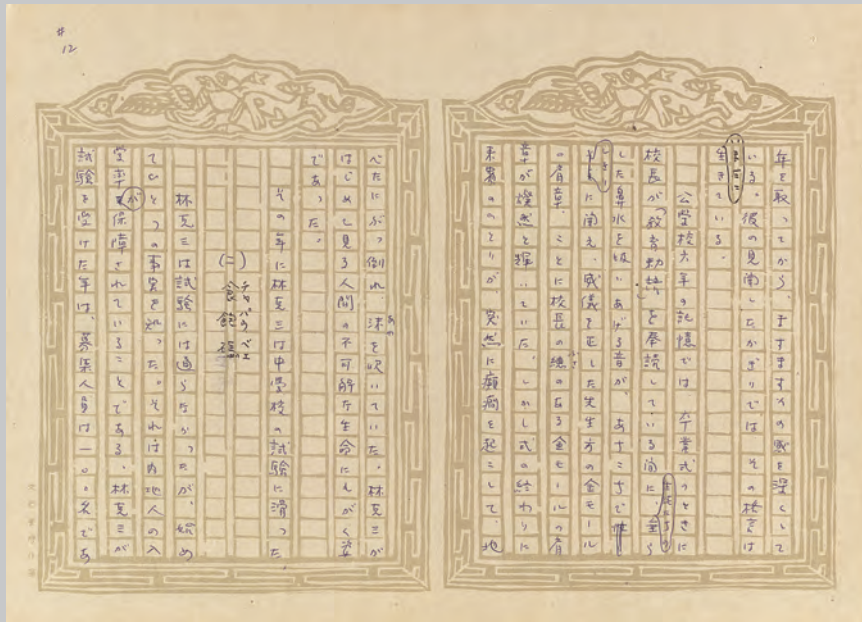 #12
年を取ってから、ますますその感を深くして
いる。彼の見聞したかぎりでは、その格言は
いまだに
生きている。
公学校六年の記憶では、卒業式のときに
校長が「教育勅語」を奉読している間に、
した鼻水を吸いあげる音が、あちこちで
しきりに聞え、威儀を正した先生方の金モール
の肩章、ことに校長の総のある金モールの肩
ふさ
章が燦然と輝いていた。しかし式の終わりに
来賓のひとりが、突然に癲癇を起こして、地
べたにぶっ倒れ、沫を吹いていた。林克三が
あわ
はじめて見る人間の不可解な生命にもがく姿
であった。
その年に林克三は中学校の試験に滑った。
(二) 食飽
林克三は試験には通らなかったが、始め
てひとつの事実を知った。それは内地人の入
学率が保障されていることである。林克三が
試験を受けた年は、募集人員は一〇〇名であ